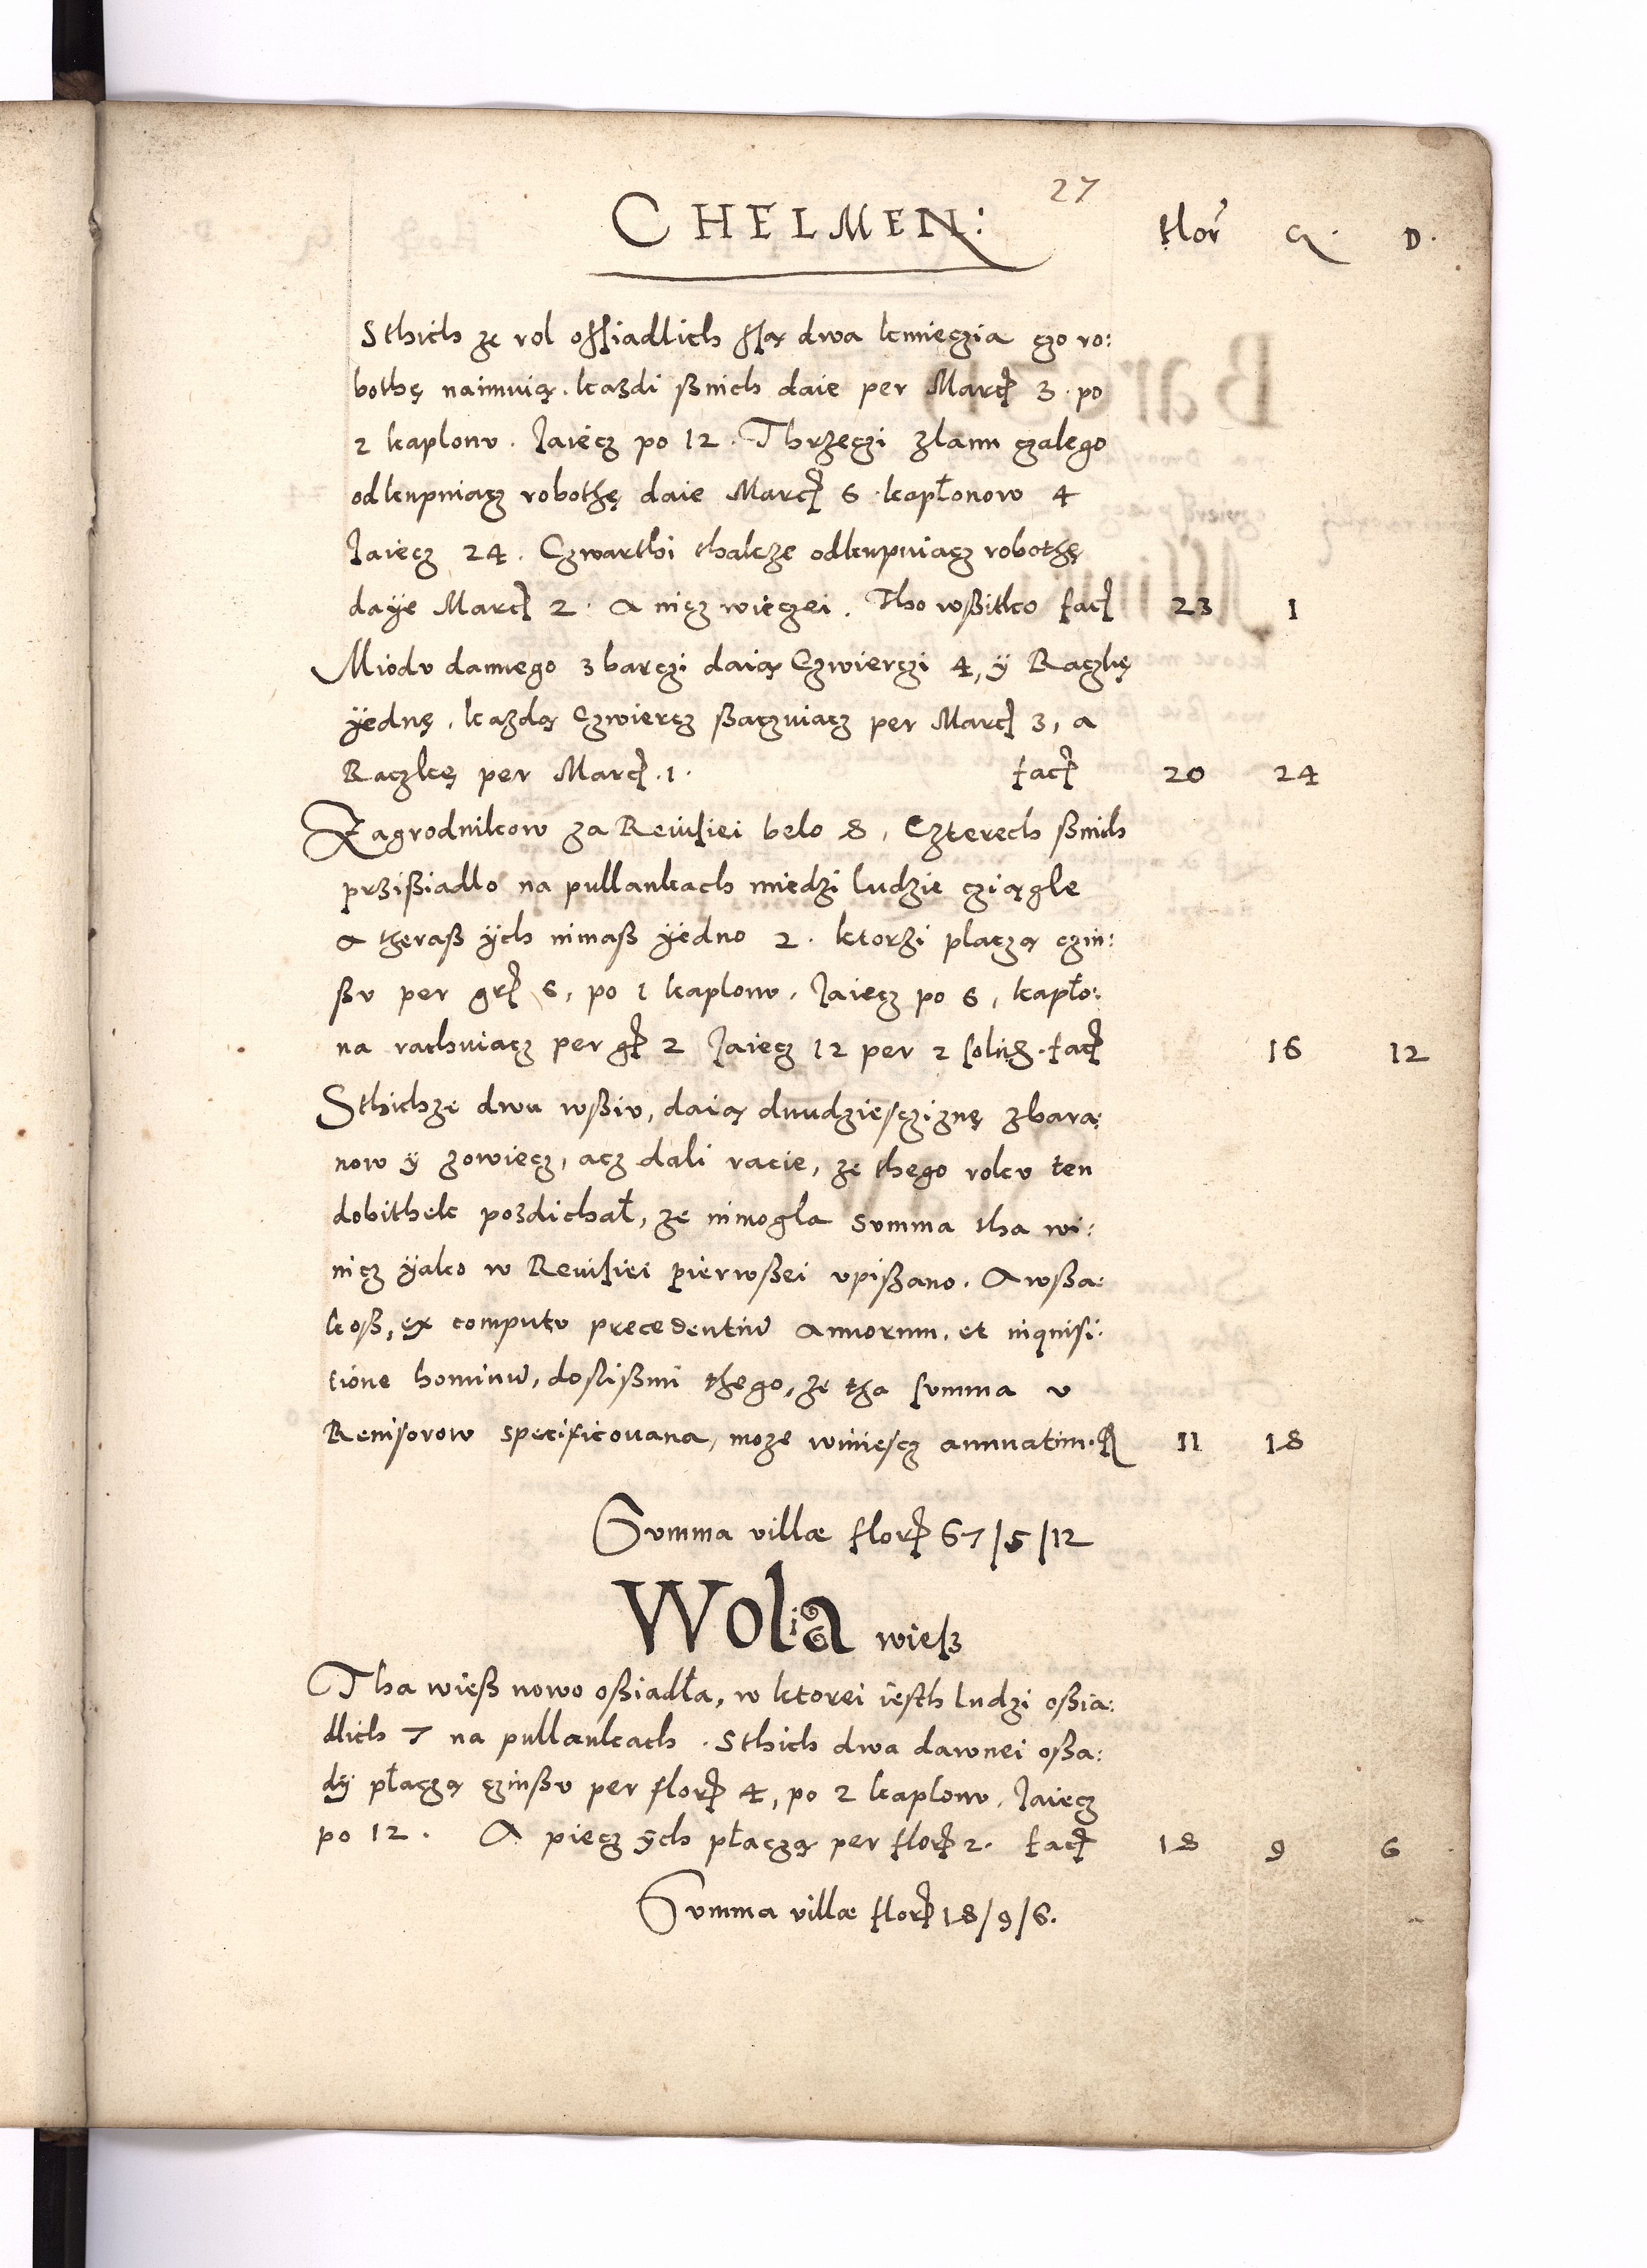 27
CHELMEN: flor G. D.
Sthich ze rol ossiadlich ssą dwa kmieczia czo ro:
bothę naimuią. kazdi ßnich daie per Marc 3. po
2 kaplonv. Jaiecz po 12. Thrzeczi zlanu czalego
odkupuiącz robothę daie Marc 6. kapłonow 4
Jaiecz 24. Czwarthi thakze odkupuiącz robothę
daÿe Marc 2. A nicz wieczei. Tho wßitko fac 23 1
Miodv dannego z barczi daią Czwierczi 4, ÿ Raczkę
ÿednę, kazdą Czwiercz ßaczuiącz per Marc 3, a
Raczkę per Marc. 1. fac 20 24
Zagrodnikow za Reuisiei belo 8, Czterech ßnich
przißiadlo na pullankach miedzi ludzie cziągle
A theraß ÿch nimaß ÿedno 2. ktorzi placzą czin:
ßv per gr 6, po 1 kaplonv. Jaiecz po 6, kapło:
na rachuiącz per gr 2 Jaiecz 12 per 2 solid. fac 16 12
Sthichze dwu wßiv, daią dwudziesciznę zbara:
now ÿ zowiecz, acz dali racie, ze thego rokv ten
dobithek pozdichał, ze nimogla svmma tha wi:
nicz ÿako w Reuisiei pierwßei vpißano. Awßa:
koß, ex computv precedentiu Annorum. et inquisi:
tione hominu, dosLißmi thego, ze tha svmma v
Reuisorow specificouana, moze winiescz annuatim. 11 18
Svmma villæ flor 67/5/12
Wola wiesz
Tha wieß nowo oßiadła, w ktorei iesth ludzi oßia:
dlich 7 na pullankach. Sthich dwa dawnei oßa:
dÿ płaczą czinßv per flor 4, po 2 kaplonv. Jaiecz
po 12. A piecz ÿch płaczą per flor 2. fac 18 9 6
Svmma villæ flor 18/9/6.